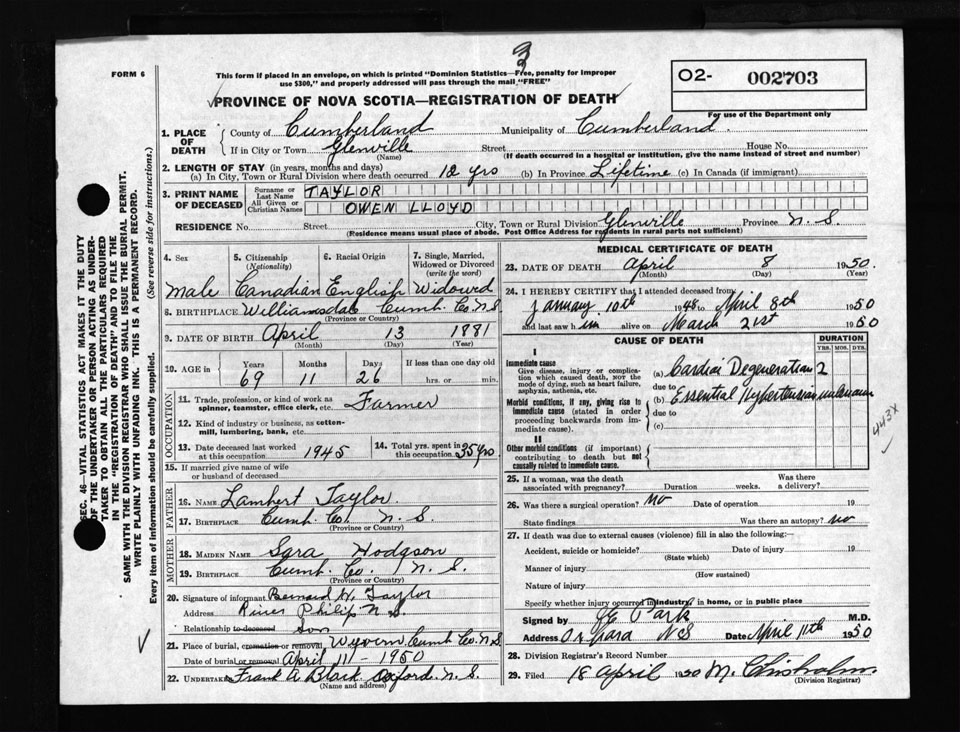 3
FORM 6
This form if placed in an envelope, on which is printed "Dominion Statistics—Free, penalty for improper
use $300," and properly addressed will pass through the mail "FREE"
O2- 002703
For use of the Department only
PROVINCE OF NOVA SCOTIA—REGISTRATION OF DEATH
SEC. 46—VITAL STATISTICS ACT MAKES IT THE DUTY
OF THE UNDERTAKER OR PERSON ACTING AS UNDER-
TAKER TO OBTAIN ALL THE PARTICULARS REQUIRED
IN THE "REGISTRATION OF DEATH" AND TO FILE THE
SAME WITH THE DIVISION REGISTRAR WHO SHALL ISSUE THE BURIAL PERMIT.
WRITE PLAINLY WITH UNFADING INK. THIS IS A PERMANENT RECORD.
Every item of information should be carefully supplied. (See reverse side for instructions.)
1. PLACE OF DEATH
County of Cumberland Municipality of Cumberland.
If in City or Town Glenville Street House No.
(Name) (If death occurred in a hospital or institution, give the name instead of street and number)
2. LENGTH OF STAY (in years, months and days)
(a) In City, Town or Rural Division where death occurred 12 yrs (b) In Province Lifetime (c) In Canada (if immigrant)
3. PRINT NAME OF DECEASED
Surname or Last Name TAYLOR
All Given or Christian Names OWEN LLOYD
RESIDENCE No. Street City, Town or Rural Division Glenville Province N.S.
(Residence means usual place of abode. Post Office Address for residents in rural parts not sufficient)
4. Sex 5. Citizenship (Nationality) 6. Racial Origin 7. Single, Married, Widowed or Divorced (write the word)
Male Canadian English Widowed
8. BIRTHPLACE Williamsdale Cumb. Co. N.S.
(Province or Country)
9. DATE OF BIRTH April 13 1881
(Month) (Day) (Year)
10. AGE in Years Months Days If less than one day old
69 11 26 hrs. or min.
OCCUPATION
11. Trade, profession, or kind of work as
spinner, teamster, office clerk, etc. Farmer
12. Kind of industry or business, as cotton-
mill, lumbering, bank, etc.
13. Date deceased last worked at this occupation 1945 14. Total yrs. spent in this occupation 35 yrs
15. If married give name of wife
or husband of deceased
FATHER
16. NAME Lambert Taylor.
17. BIRTHPLACE Cumb. Co. N.S.
(Province or Country)
MOTHER
18. MAIDEN NAME Sara Hodgson
19. BIRTHPLACE Cumb. Co. N.S.
(Province or Country)
20. Signature of informant Bernard H. Taylor
Address River Philip N.S.
Relationship to deceased son
21. Place of burial, cremation or removal Wyvern Cumb Co. N.S.
Date of burial or removal April 11 - 1950
22. UNDERTAKER Frank A Black Oxford. N.S.
(Name and address)
MEDICAL CERTIFICATE OF DEATH
23. DATE OF DEATH April 8 1950.
(Month) (Day) (Year)
24. I HEREBY CERTIFY that I attended deceased from
January 10th 1948 to April 8th 1950
and last saw him alive on March 21st 1950
CAUSE OF DEATH
DURATION
YRS. MOS. DYS.
I
Immediate cause
Give disease, injury or complica-
tion which caused death, not the
mode of dying, such as heart failure,
asphyxia, asthenia, etc.
Morbid conditions, if any, giving rise to
immediate cause (stated in order
proceeding backwards from im-
mediate cause).
II
Other morbid conditions (if important)
contributing to death but not
causally related to immediate cause.
(a) Cardiac Degeneration 2
due to
(b) Essential Hypertension unknown
due to
(c)
443X
25. If a woman, was the death associated with pregnancy? Duration weeks. Was there a delivery?
26. Was there a surgical operation? No Date of operation 19
State findings Was there an autopsy? no
27. If death was due to external causes (violence) fill in also the following:—
Accident, suicide or homicide? Date of injury 19
(State which)
Manner of injury
(How sustained)
Nature of injury
Specify whether injury occurred in industry, in home, or in public place
Signed by Park M.D.
Address N.S. Date April 11th 1950
28. Division Registrar's Record Number
29. Filed 18 April 1950 M. Chisholm.
(Division Registrar)